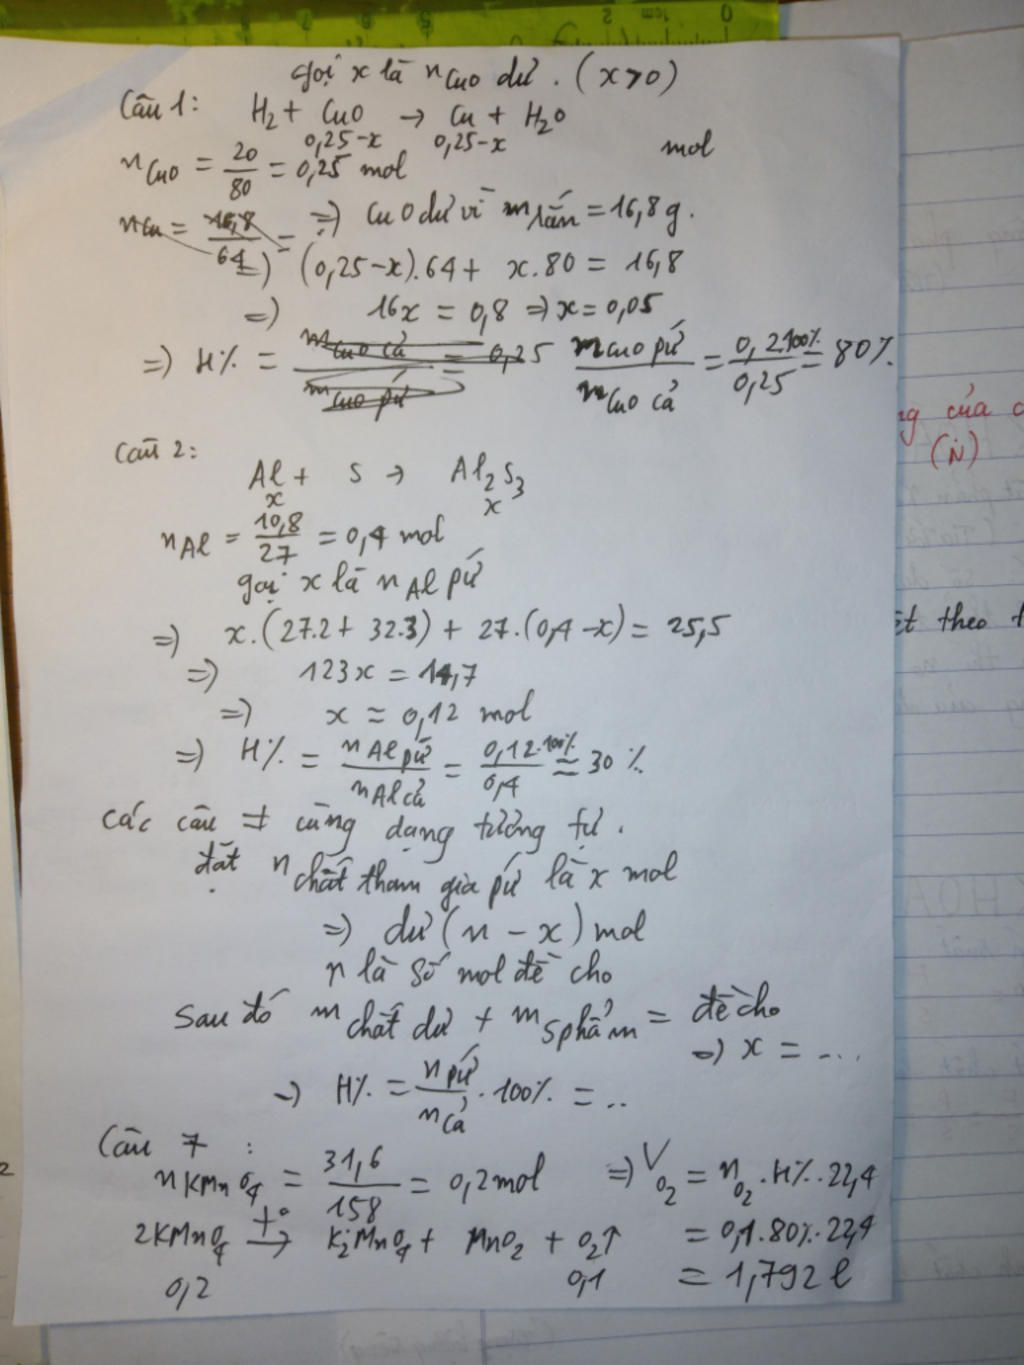 gọi x là nCuO dư . ( x > 0 )
Câu 1: H2 + CuO → Cu + H2O
0,25-x 0,25-x mol
nCuO = 20/80 = 0,25 mol
nCu = 16,8/64 = => CuO dư vì m rắn = 16,8 g.
=> (0,25-x).64 + x.80 = 16,8
=> 16x = 0,8 => x = 0,05
=> H% = mCuO cả / mCuO pứ = 0,25 mCuO pứ / mCuO cả = 0,2.100% / 0,25 = 80%.
Câu 2:
Al + S → Al2S3
x x
nAl = 10,8/27 = 0,4 mol
gọi x là nAl pứ
=> x.(27.2 + 32.3) + 27.(0,4-x) = 25,5
=> 123x = 14,7
=> x ≈ 0,12 mol
=> H% = nAl pứ / nAl cả = 0,12.100% / 0,4 ≈ 30%.
các câu ≠ cũng dạng tương tự .
đặt n chất tham gia pứ là x mol
=> dư (n - x) mol
n là số mol đề cho
sau đó m chất dư + m sphẩm = đề cho
=> x = ...
=> H% = n pứ / n cả . 100% = ..
Câu 7 :
nKMnO4 = 31,6/158 = 0,2 mol => VO2 = nO2 . H% . 22,4
2KMnO4 t° → K2MnO4 + MnO2 + O2↑ = 0,1.80%.22,4
0,2 0,1 = 1,792 l
ng của c
(N)
ết theo t